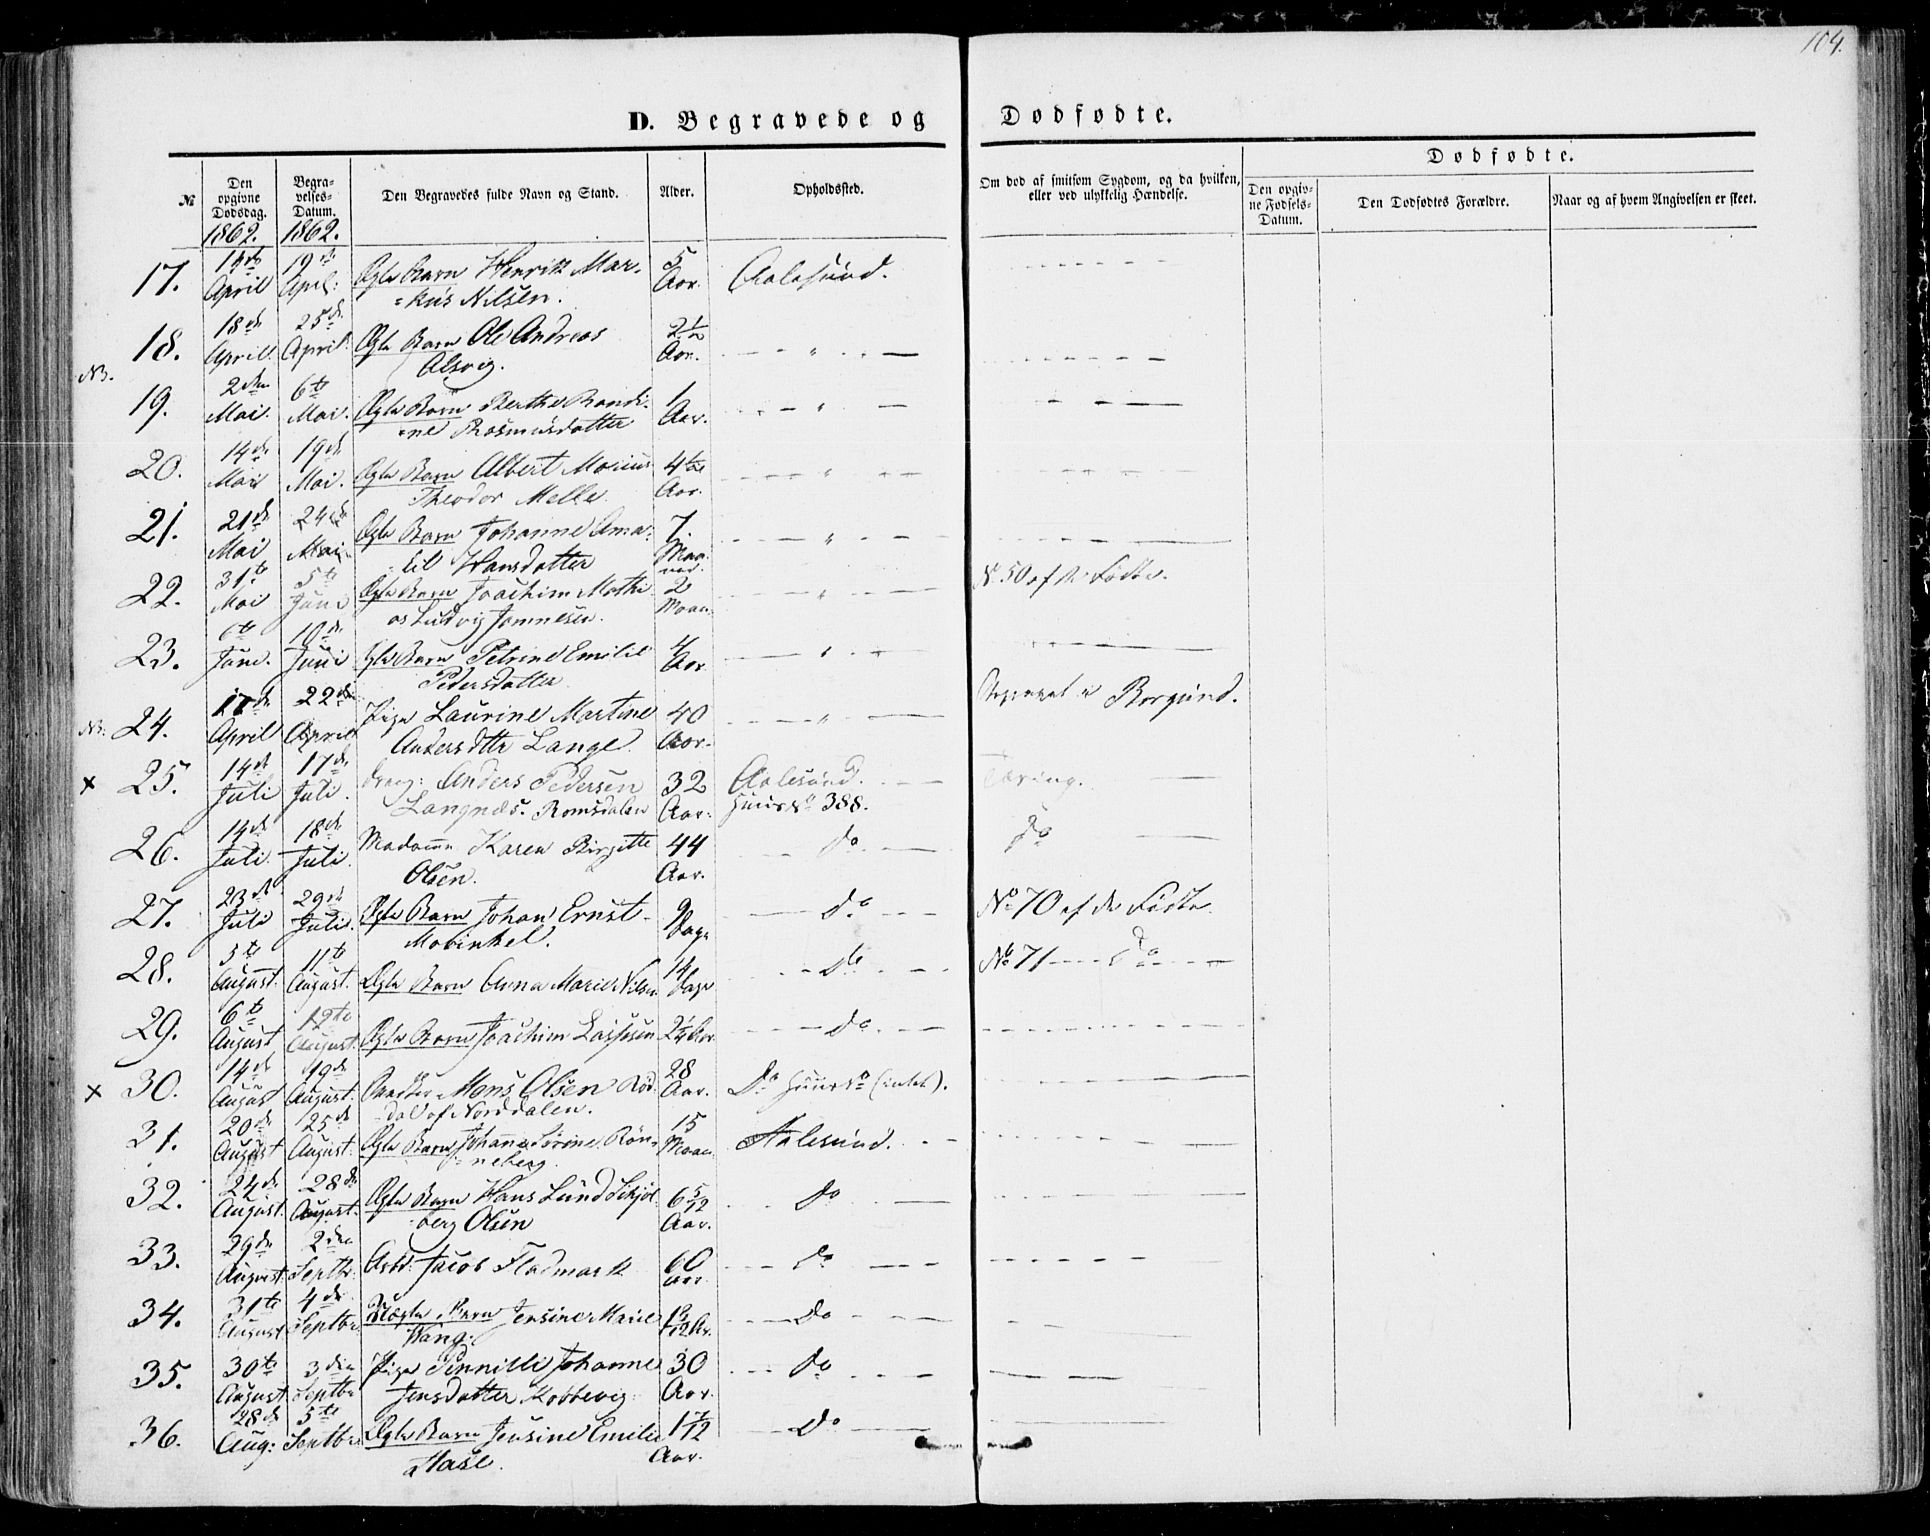 104.
D. Begravede og Dødfødte.
№
Den opgivne Dødsdag.
Begravelses-Datum.
Den Begravedes fulde Navn og Stand.
Alder.
Opholdssted.
Om død af smitsom Sygdom, og da hvilken, eller ved ulykkelig Hændelse.
Dødfødte.
Den opgivne Fødsels-Datum.
Den Dødfødtes Forældre.
Naar og af hvem Angivelsen er skeet.
1862. 1862.
17. April 19de April: Ægte Barn Henrik Mar-
=kus Nilsen. 5 Aar. Aalesund.
18. 18de April 25de April. Ægte Barn Ole Andreas
Alsvig. 2½ Aar. — " —
NB.
19. 2den Mai. 6te Mai. Ægte Barn Berthe Randi-
=ne Rasmusdatter 1 Aar. — " —
20. 14de Mai 19de Mai. Ægte Barn Albert Marius
Theodor Melle. 4 Aar. — " —
21. 21de Mai 24de Mai Ægte Barn Johanne Ama-
lil Hansdatter 7. Maaned. — " —
22. 31te Mai 5te Juni Ægte Barn Joachim Mathi
as Ludvig Jomnesen. 2 Maan. — " — № 50 af de Fødte.
23. 6te Juni. 10de Juni Ægte Barn Petrine Emilie
Pedersdatter 4 Aar — " —
NB. 24. 17de April 22de April Pige Laurine Martine
Andersdttr Lange. 40 Aar. — " — Begravet i Borgund.
x 25. 14de Juli 17de Juli. Anders Pedersen
Langnæs. Romsdalen 32 Aar. Aalesund. Huus № 388. Tæring.
26. 14de Juli. 18de Juli. Madame Karen Birgitte
Olsen. 44 Aar. do do
27. 23de Juli 29de Juli. Ægte Barn Johan Ernst
Mobinkel. 9 Dage do № 70 af de Fødte.
28. 5te August. 11te August. Ægte Barn Anna Marie Nilsen 14 Dage do № 71 — do
29. 6te August 12te August. Ægte Barn Joachim 2¼ Aar do
x 30. 14de August 19de August. Mons Olsen Rød-
dal af Norddalen. 28 Aar. Do Huus № (intet).
31. 20de August 25de August. Ægte Barn Johanne Sørine Røn-
=neberg 15 Maan. Aalesund.
32. 24de August. 28de August. Ægte Barn Hans Lund
berg Olsen 6 5/12 Aar. do
33. 29de August. 2den Septbr. Arbd: Jacob Fladmark 60 Aar do
34. 31te August 4de Septbr. Uægte Barn Jensine Marie
Wang. Aar. Do
35. 30te August 3die Septbr Pige Pernille Johanne
Jensdatter Kobbevig. 30 Aar. do
36. 28de Aug: 5te Septbr. Ægte Barn Jensine Emilie
Hase. 1 7/12 Aar. Do